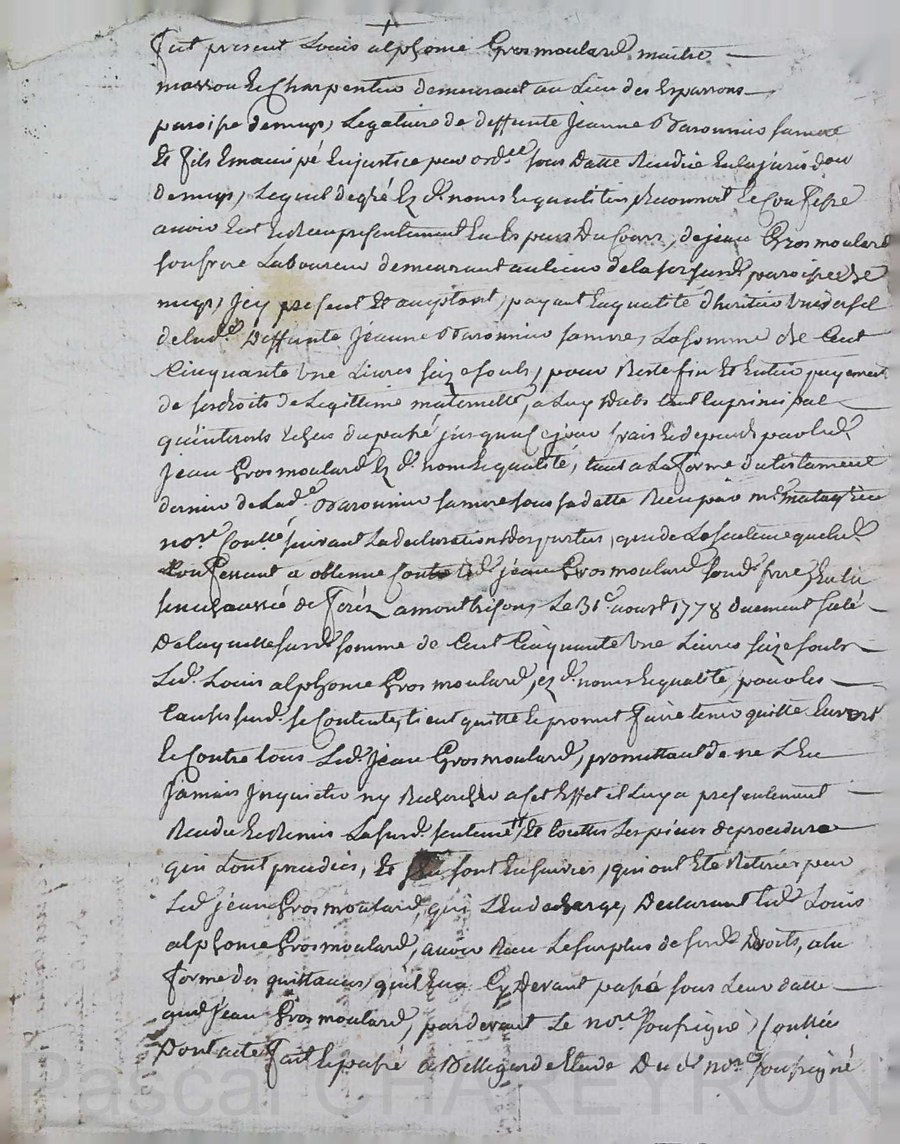 fut present Louis alphonse Grosmoulard maitre
masson & Charpentier demeurant au Lieu des Esparrons
paroisse de mys, Legataire de deffunte Jeanne Baronnier sa mere
Et fils Emancipé En justice par ordce sous datte Rendue En la jurisdon
de mys, Lequel de gré Ez d. noms & qualités, Reconnoit & Confesse
avoir Eut & Receu presentement En Espèces Du Cours, de jean Grosmoulard
son frere Laboureur demeurant au lieu de la paroisse de
mys, Jcy present Et acceptant, payant En qualité d'heritier Universel
de lade Deffunte Jeanne Baronnier sa mere, La somme de Cent
Cinquante Une Livres seize souls, pour Reste fin Et Entier payement
de ses droits de Legittime maternelle, a Luy dubs tant En principal
qu'interets Echus du passé jusques a Ce jour frais & depends par led.
Jean Grosmoulard Ez d. nom & qualité, tant a La forme du testament
dernier de Lade Baronnier sa mere sous sa datte Receu par me
nore suivant La declaration des parties, que de La sentence que led.
Confessant a obtenue Contre led. jean Grosmoulard sond. frere, En la
senechaussée de forez a montbrison Le 31e aoust 1778 duement scelé
De laquelle surd. somme de Cent Cinquante Une Livres seize souls
Led. Louis alphonse Grosmoulard, ez d. noms & qualité, pour les
Causes surd. se Contente, tient quitte & promet faire tenir quitte Envers
& Contre tous Led. Jean Grosmoulard, promettant de ne L'En
jamais Jnquieter ny Rechercher a cet Effet il Luy a presentement
Rendu & Remis La surd. sentence Et touttes Les pieces de procedure
qui L'ont precedées, Et sont Ensuivies, qui ont Eté Retirées par
Led. jean Grosmoulard, qui L'En decharge, Declarant led. Louis
alphonse Grosmoulard, avoir Receu Le surplus de sesd. Droits, a la
forme des quittances qu'il En a Cy Devant passé sous Leur datte
aud. Jean Grosmoulard, pardevant Le nore soussigné
Dont acte fait & passé a Bellegarde Etude Du d. nore soussigné
Pascal CHAREYRON